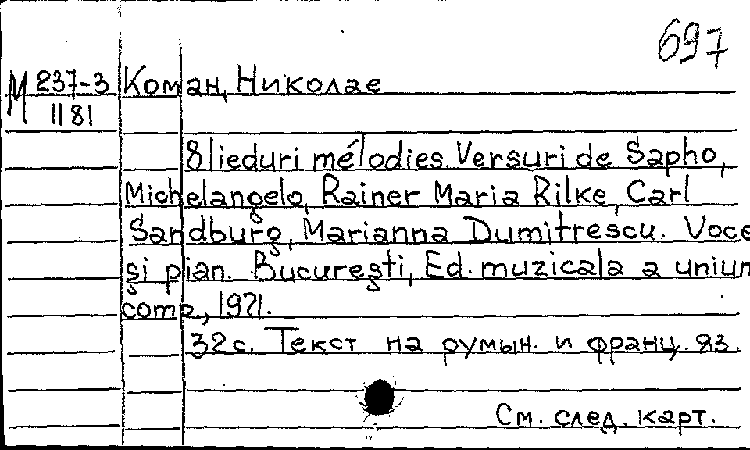 697
М 237-3 Коман, Николае
1181
8 lieduri mélodies. Versuri de Sapho,
Michelangelo, Rainer Maria Rilke, Carl
Sandburg, Marianna Dumitrescu. Voce
și pian. București, Ed. muzicala a uniun
comp, 1971.
32 с. Текст на румын. и франц. яз.
См. след. карт.